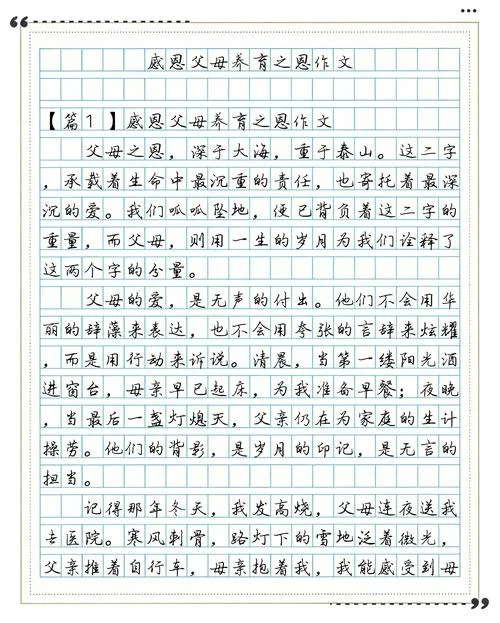 感恩父母养育之恩作文
【篇1】感恩父母养育之恩作文
父母之恩，深于大海，重于泰山。这二字
，承载着生命中最沉重的责任，也寄托着最深
沉的爱。我们呱呱坠地，便已背负着这二字的
重量，而父母，则用一生的岁月为我们诠释了
这两个字的分量。
父母的爱，是无声的付出。他们不会用华
丽的辞藻来表达，也不会用夸张的言辞来炫耀
，而是用行动来诉说。清晨，当第一缕阳光洒
进窗台，母亲早已起床，为我准备早餐；夜晚
，当最后一盏灯熄灭，父亲仍在为家庭的生计
操劳。他们的背影，是岁月的印记，是无言的
担当。
记得那年冬天，我发高烧，父母连夜送我
去医院。寒风刺骨，路灯下的雪地泛着微光，
父亲推着自行车，母亲抱着我，我能感受到母